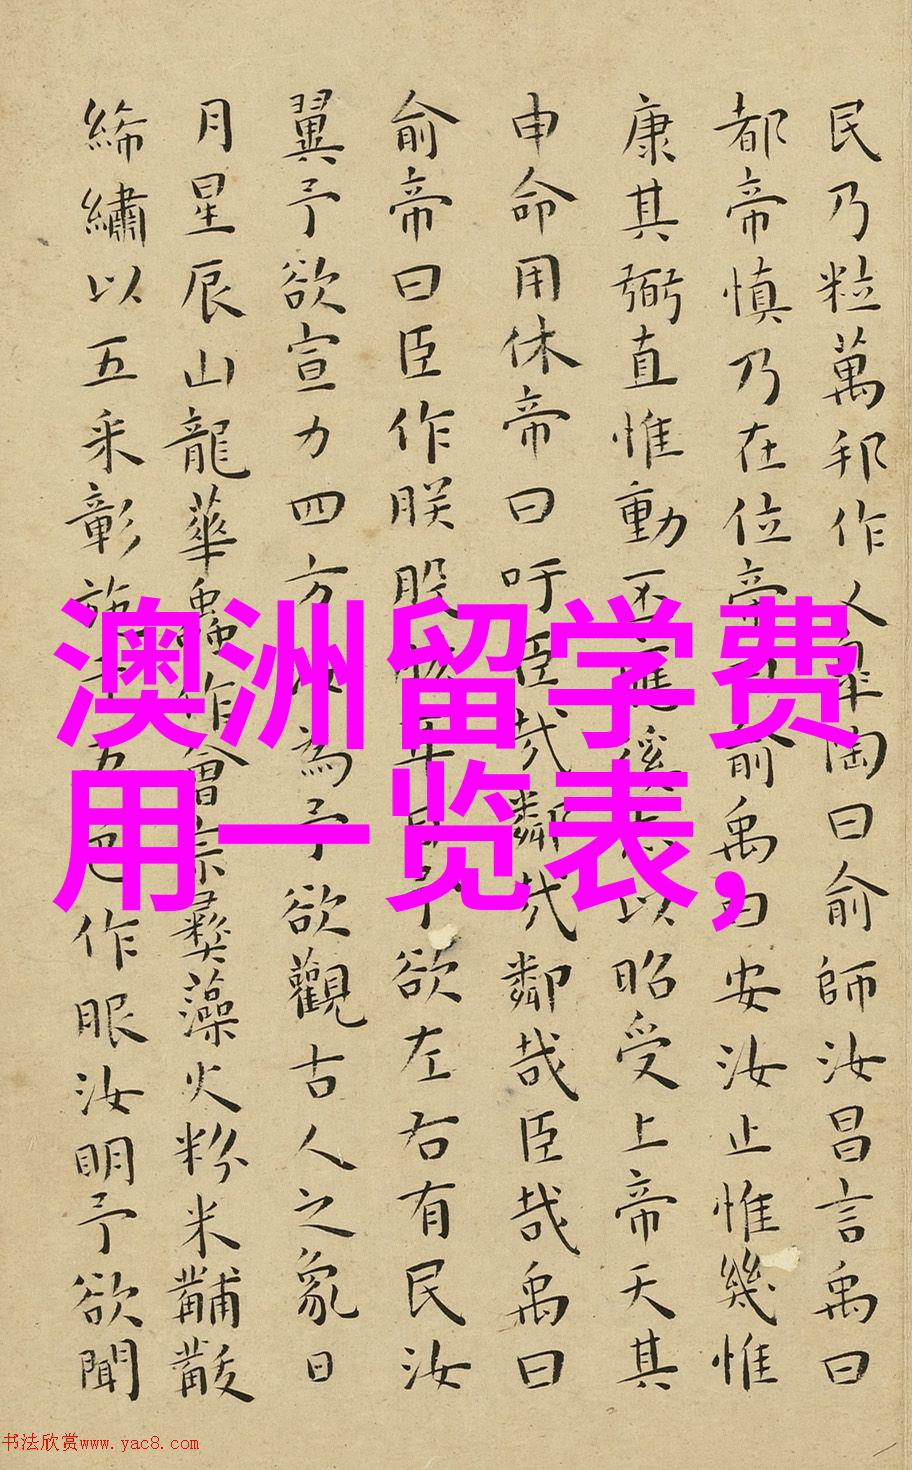 民乃粒萬邦作乂皋陶曰俞師汝昌言禹曰
都帝慎乃在位帝曰俞禹曰安汝止惟幾惟
康其弼直惟動丕應徯志以昭受上帝天其
申命用休帝曰吁臣哉鄰哉鄰哉臣哉禹曰
俞帝曰臣作朕股肱耳目予欲左右有民汝
翼予欲宣力四方汝為予欲觀古人之象日
月星辰山龍華蟲作會宗彝藻火粉米黼黻
絺繡以五采彰施于五色作服汝明予欲聞
澳洲留学费
用一览表,
书法欣赏www.yac8.com